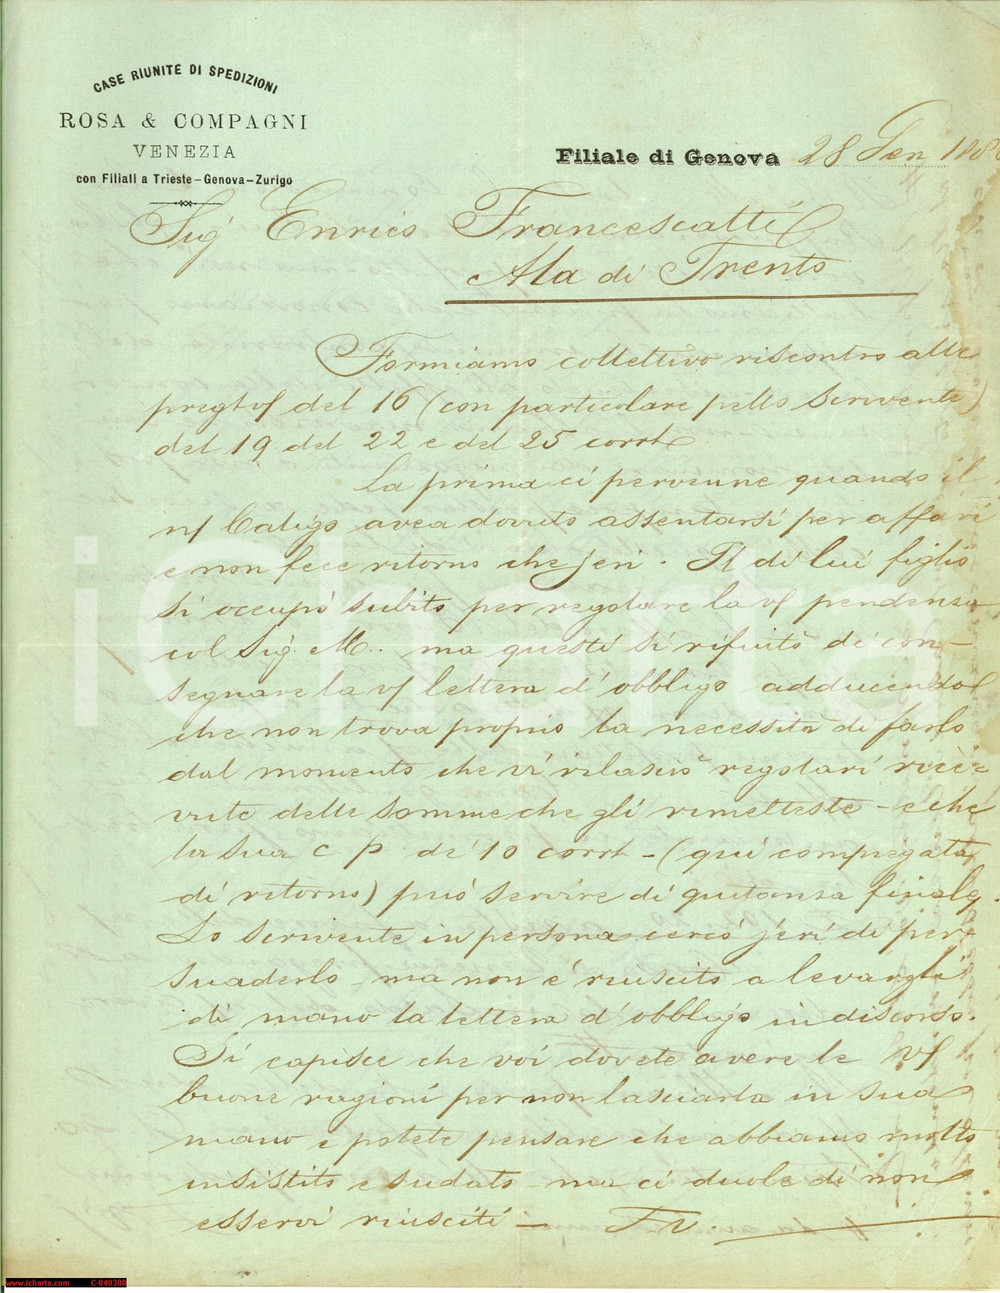 CASE RIUNITE DI SPEDIZIONI
ROSA & COMPAGNI
VENEZIA
con Filiali a Trieste-Genova-Zurigo
Filiale di Genova 28 Gen 188
Sig Enrico Francescatti
Ala di Trento
Formiamo collettivo riscontro alle
preg vf del 16 (con particolare pello scrivente)
del 19 del 22 e del 25 corrt
La prima ci pervenne quando il
nf Caligo avea dovuto assentarsi per affari
e non fece ritorno che jeri. Il di lui figlio
si occupò subito per regolare la vf pendenza
col Sig. M.. ma questi si rifiutò di con-
segnare la vf lettera d'obbligo adducendo
che non trova proprio la necessità di farlo
dal momento che vi rilasciò regolari rice-
vute delle somme che gli rimetteste - e che
la sua c p. de' 10 corrt - (qui compiegata
di ritorno) può servire di quitanza finale.
Lo scrivente in persona cercò jeri di per-
suaderlo - ma non è riuscito a levargli
di mano la lettera d'obbligo in discorso.
Si capisce che voi dovete avere le vf
buone ragioni per non lasciarla in sua
mano e potete pensare che abbiamo molto
insistito e sudato - ma ci duole di non
esservi riusciti -
iCharta
www.icharta.com C-040300